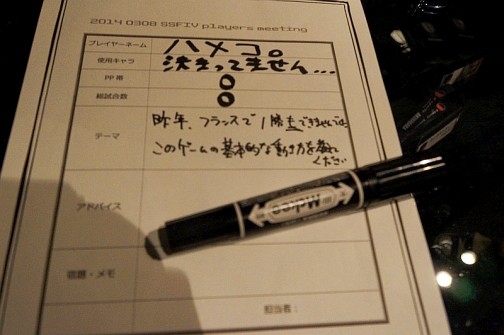 2014 0308 SSFIV players meeting
プレイヤーネーム ハメコ。
使用キャラ 決まってません...
PP帯 0
総試合数 0
テーマ 昨年、フランスで1勝もできませんでした
このゲームの基本的な動き方を教えて
ください
アドバイス
Mckee
宿題・メモ
担当者: